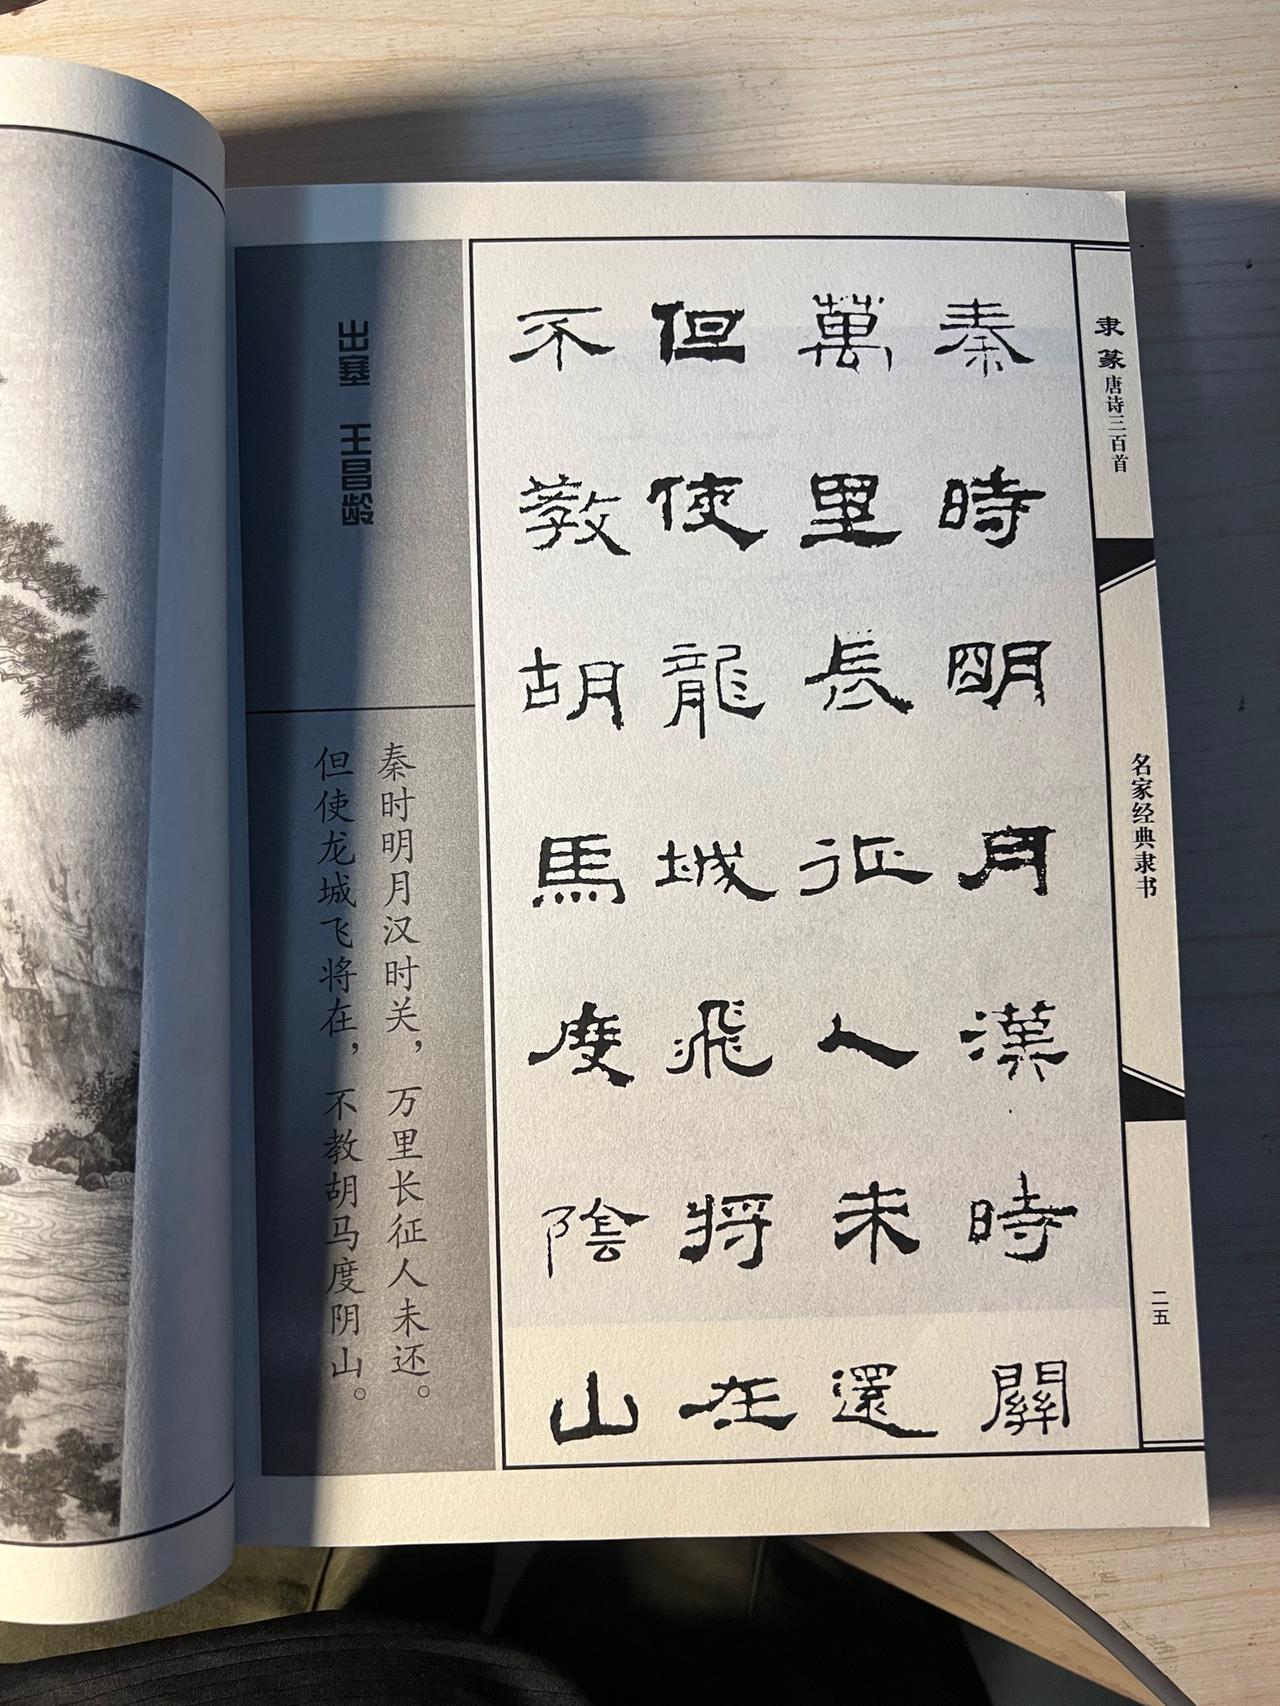 隶篆唐诗三百首
名家经典隶书
二五
秦時明月漢時關
萬里長征人未還
但使龍城飛將在
不教胡馬度陰山
出塞 王昌龄
秦时明月汉时关，万里长征人未还。
但使龙城飞将在，不教胡马度阴山。